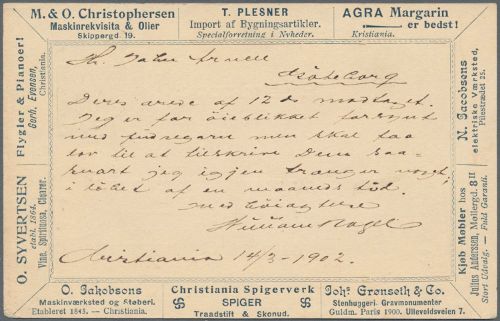 M. & O. Christophersen
Maskinrekvisita & Olier
Skippergd. 19.
T. PLESNER
Import af Bygningsartikler.
Specialforretning i Nyheder.
AGRA Margarin
er bedst!
Kristiania.
Flygler & Pianoer!
Gorh. Evensen,
Christiania.
O. SYVERTSEN
etabl. 1864.
Vine, Spirituosa, Cigarer.
Hr. John Arnell
Göteborg
Deres ærede af 12 ds modtaget.
Jeg er for öieblikket forsynt
med findsegarn men skal faa
lov til at tilskrive Dem saa-
snart jeg igjen trænger noget,
i löbet af en maaneds tid.
med höiagtelse
William Nagel
Christiania 14/3-1902.
N. Jacobsens
elektriske Værksted,
Pilestrædet 25.
Kjøb Møbler hos
Julius Andersen, Møllergd. 8 II
Stort Udvalg. — Fuld Garanti.
O. Jakobsens
Maskinværksted og Støberi.
Etableret 1845. — Christiania.
Christiania Spigerverk
SPIGER
Traadstift & Skonud.
Johs Grønseth & Co.
Stenhuggeri- Gravmonumenter
Guldm. Paris 1900. Ullevoldsveien 7.